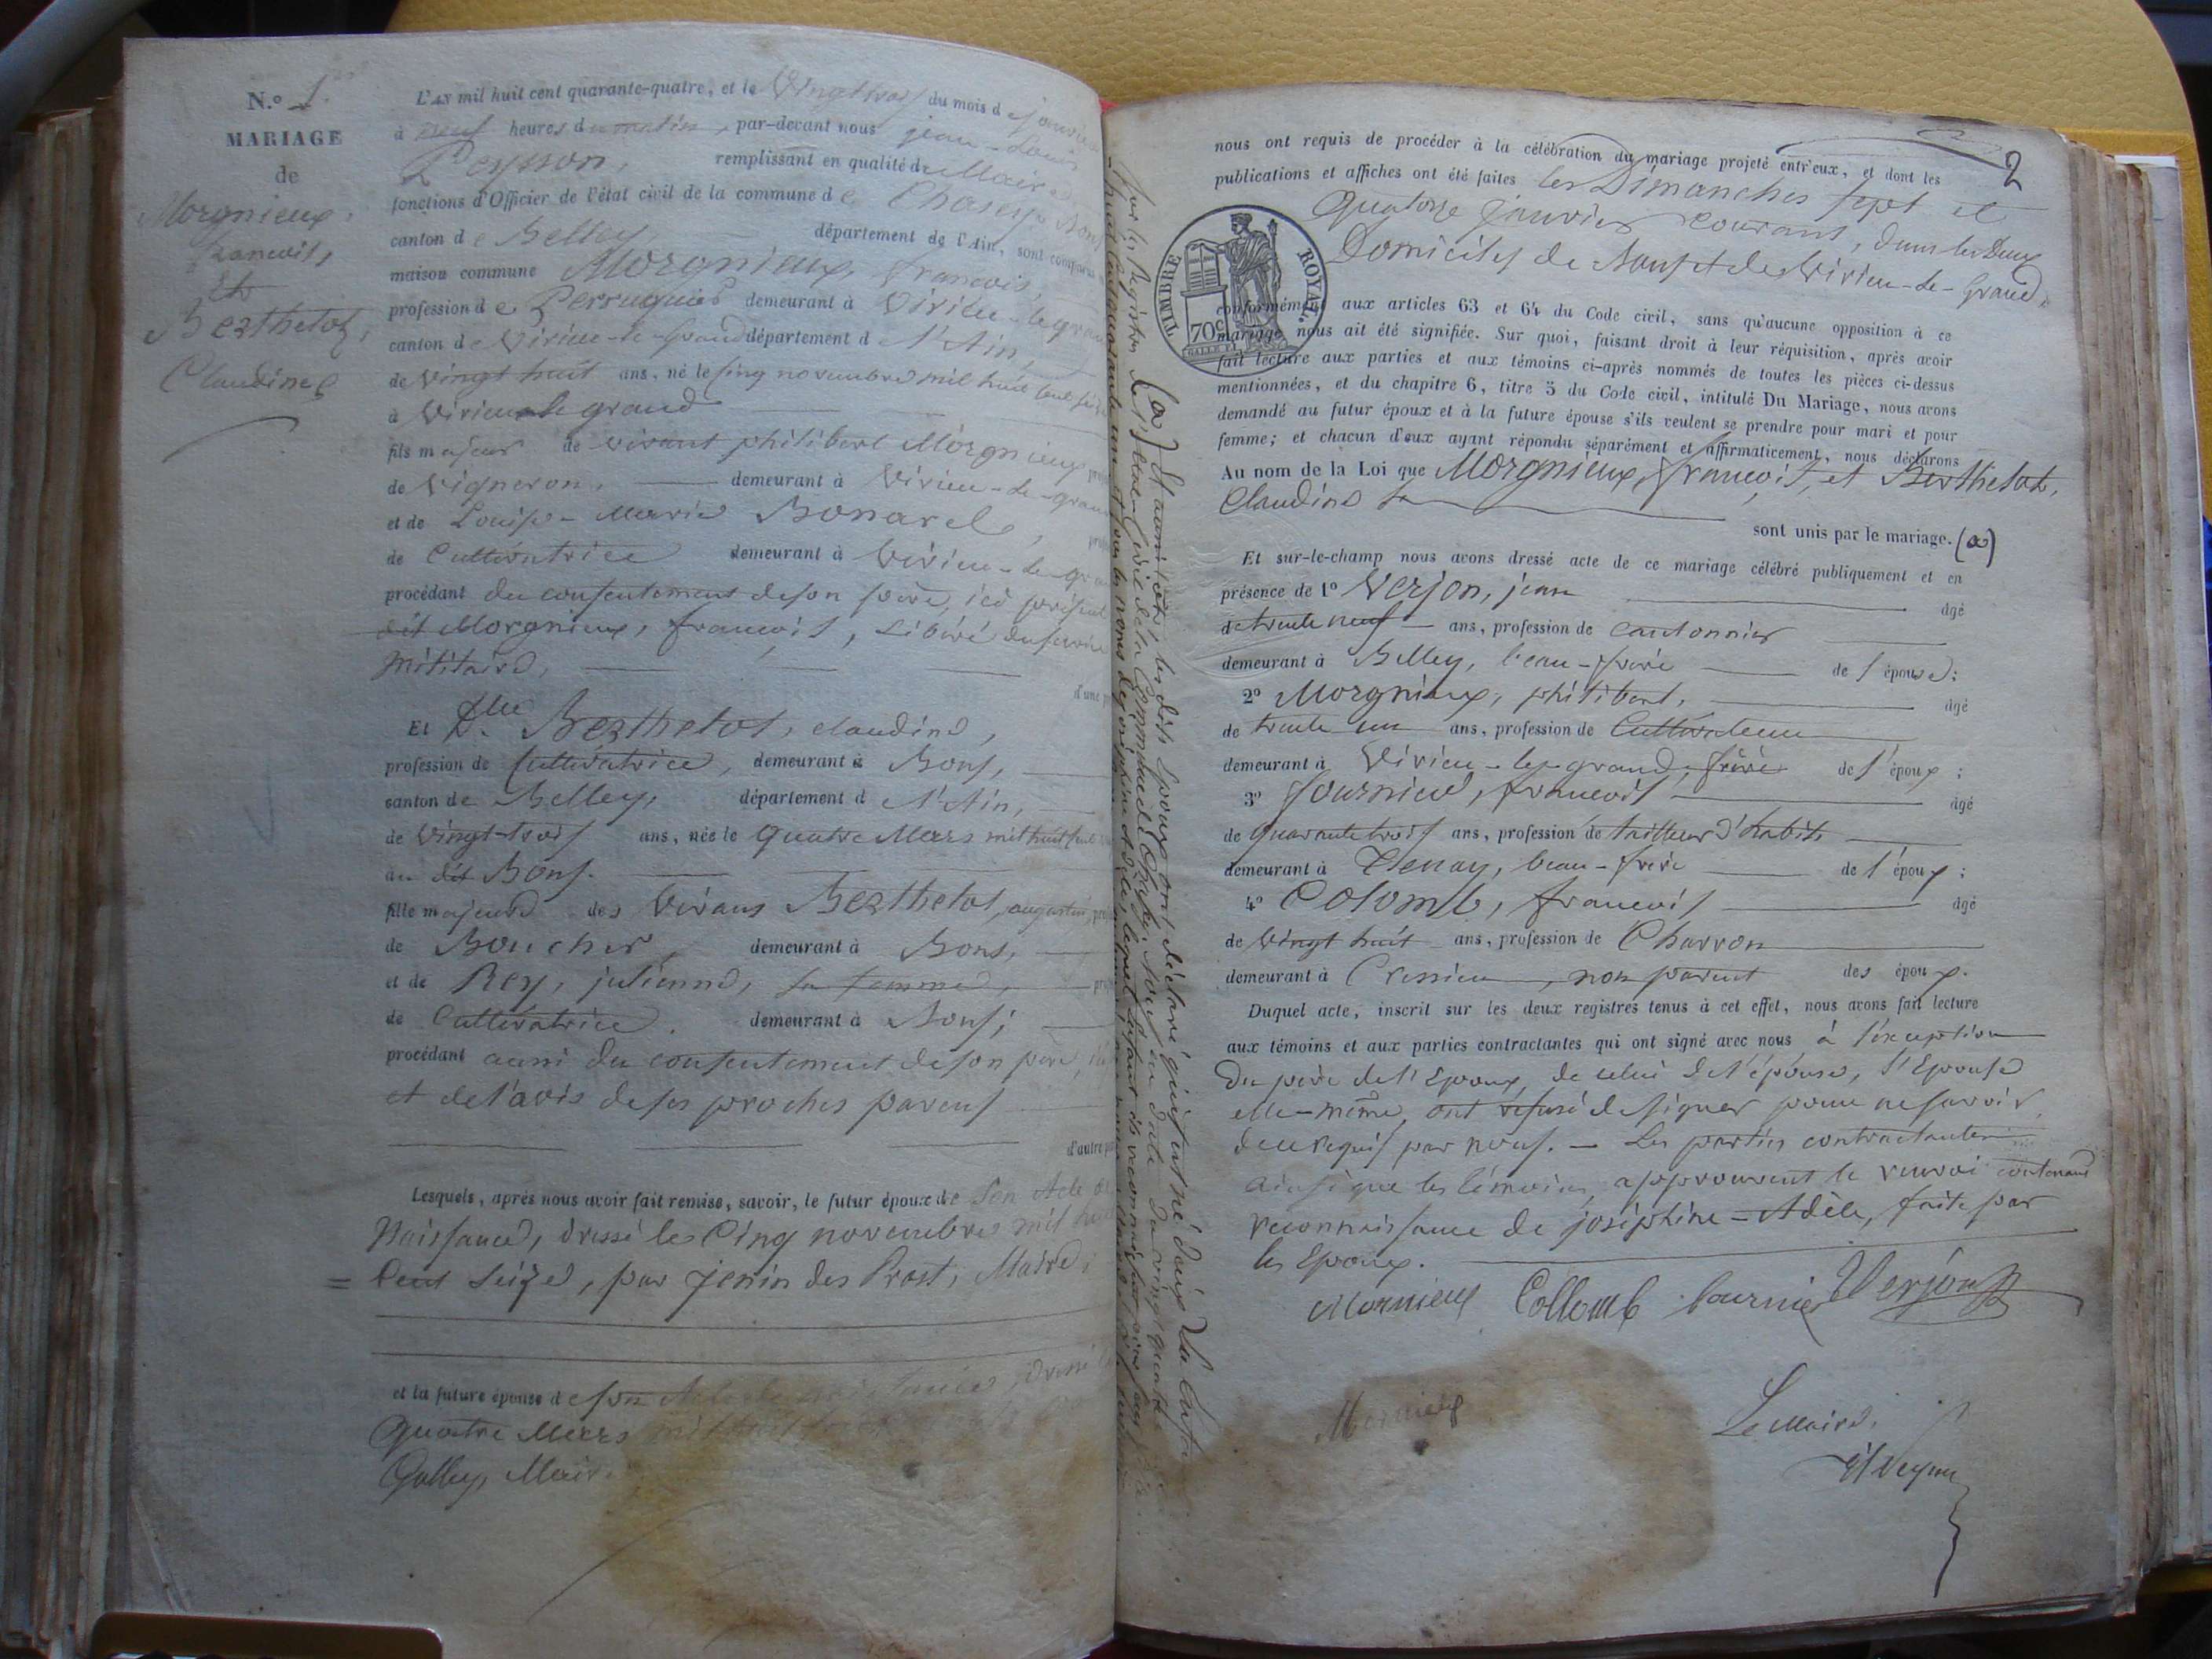 N.º 1.er
MARIAGE
de
Morgnieux,
francois,
Et
Berthelot,
Claudine
L'AN mil huit cent quarante-quatre, et le Vingt trois du mois de janvier
à neuf heures du matin, par-devant nous jean-Louis
Peysson, remplissant en qualité de Maire
fonctions d'Officier de l'état civil de la commune de Chazey-Bons
canton de Belley département de l'Ain, sont comparus
maison commune Morgnieux, francois,
profession de Perruquier demeurant à Virieu-le-grand
canton de Virieu-le-Grand département d l'Ain,
de Vingt huit ans, né le cinq novembre mil huit cent seize
à Virieu-le grand
fils majeur de vivant philibert Morgnieux
de Vigneron, demeurant à Virieu-le-grand
et de Louise-Marie Bonarel,
de Cultivatrice demeurant à Virieu-le-gra
procédant du consentement de son père, ici présent
dit Morgnieux, francois, Libéré du service
Militaire,
d'une p
Et Dlle Berthelot, claudine,
profession de Cultivatrice, demeurant à Bons,
canton de Belley, département d l'Ain,
de Vingt-trois ans, née le quatre Mars mil huit cent
au dit Bons.
fille majeure des Vivans Berthelot, augustin,
de Boucher, demeurant à Bons,
et de Rey, julienne, sa femme,
de Cultivatrice. demeurant à Bons;
procédant aussi du consentement de son père,
et de l'avis de ses proches parens
d'autre p
Lesquels, après nous avoir fait remise, savoir, le futur époux de Son Acte de
Naissance, dressé le Cinq novembre mil huit
= Cent Seize, par jenin des Prost, Maire;
et la future épouse de son Acte de naissance, dressé le
quatre Mars mil huit
Golley, Maire
2
nous ont requis de procéder à la célébration du mariage projeté entr'eux, et dont les
publications et affiches ont été faites les Dimanches sept et
quatorze janvier courant, dans les deux
Domiciles de Bons et de Virieu-le-Grand,
TIMBRE ROYAL.
70c
conformément aux articles 63 et 64 du Code civil, sans qu'aucune opposition à ce
mariage nous ait été signifiée. Sur quoi, faisant droit à leur réquisition, après avoir
fait lecture aux parties et aux témoins ci-après nommés de toutes les pièces ci-dessus
mentionnées, et du chapitre 6, titre 5 du Code civil, intitulé Du Mariage, nous avons
demandé au futur époux et à la future épouse s'ils veulent se prendre pour mari et pour
femme; et chacun d'eux ayant répondu séparément et affirmativement, nous déclarons
Au nom de la Loi que Morgnieux, francois, et Berthelot,
Claudine
sont unis par le mariage. (a)
Et sur-le-champ nous avons dressé acte de ce mariage célébré publiquement et en
présence de 1º Verjon, jean âgé
de trente neuf ans, profession de cantonnier
demeurant à Belley, beau-frère de l'épouse;
2º Morgnieux, philibert, âgé
de trente un ans, profession de Cultivateur
demeurant à Virieu-le-grand, frère de l'époux;
3º fournier, francois âgé
de quarante trois ans, profession de tailleur d'habits
demeurant à Tenay, beau-frère de l'époux;
4º Colomb, francois âgé
de Vingt huit ans, profession de Charron
demeurant à Cressieu, non parent des époux.
Duquel acte, inscrit sur les deux registres tenus à cet effet, nous avons fait lecture
aux témoins et aux parties contractantes qui ont signé avec nous à l'éxception
du père de l'Epoux, de celui de l'épouse, l'Epouse
elle-même, ont refusé de signer pour ne savoir,
de ce requis par nous. — Les parties contractantes
ainsi que les témoins, approuvent le renvoi contenant
reconnaissance de joséphine-Adèle, faite par
les Epoux.
Mornieux Collomb fournier Verjon
Mornieux
Le Maire,
(a) Et aussitôt, les dits époux ont déclaré qu'il est né d'eux
sur les Registres de l'état-Civil de la Commune de Chazey-Bons, en date du vingt quatre
mil huit Cent quarante un et sous les noms de joséphine Adèle, lequel Enfant ils reconnaissent pour